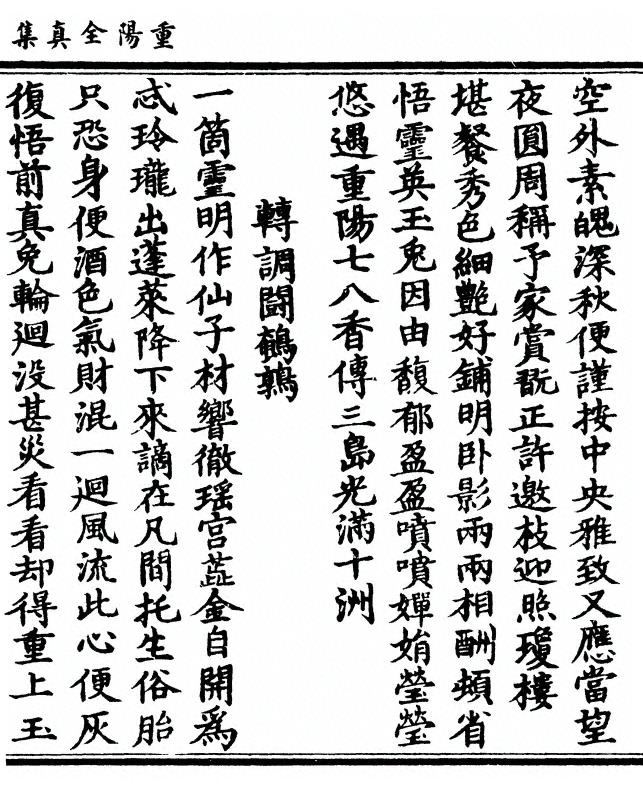 重陽全真集
空外素魄深秋便謹按中央雅致又應當望
夜圓周稱予家賞翫正許邀枝迎照瓊樓
堪餐秀色細艷好鋪明卧影兩兩相酬頻省
悟靈英玉兎因由馥郁盈盈噴噴嬋娟瑩瑩
悠遇重陽七八香傳三島光滿十洲
轉調鬭鵪鶉
一箇靈明作仙子材響徹瑶宫蕋金自開爲
忒玲瓏出蓬萊降下來謫在凡間托生俗胎
只恐身便酒色氣財混一迴風流此心便灰
復悟前真免輪迴没甚災看看却得重上玉